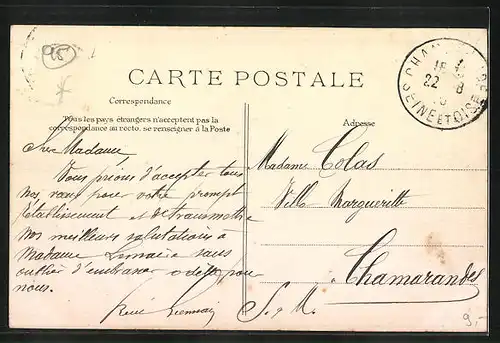 95
CARTE POSTALE
Correspondance
Tous les pays étrangers n'acceptent pas la
correspondance au recto. se renseigner à la Poste
Adresse
22
SEINE ET OISE
Madame,
Vous prions d'accepter tous
nos vœux pour votre prompt
établissement et de transmettre
nos meilleurs salutations à
Madame sans
oublier d'embrasser pour
nous.
René
Madame Colas
Villa Marguerite
Chamarandes
S. & M.
9,-